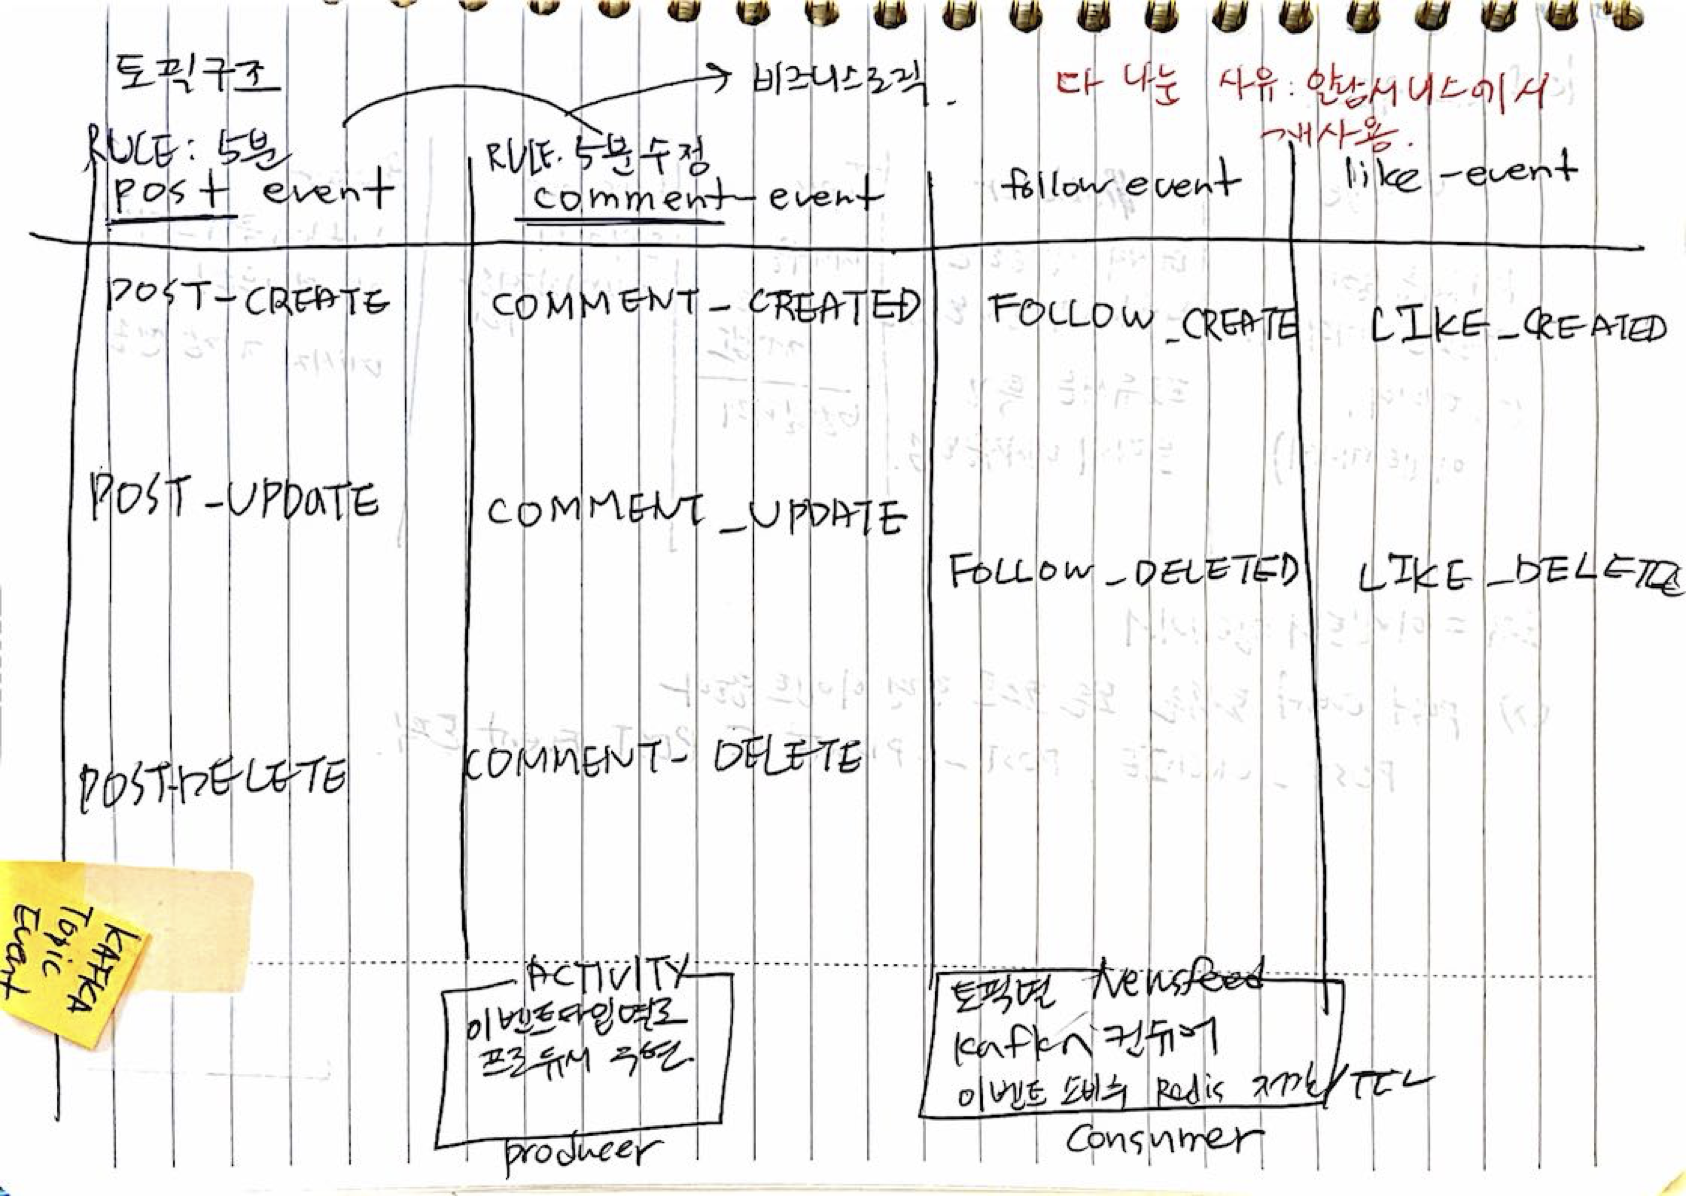 토픽구조
비즈니스로직.
다 나눈 사유: 알람서비스에서
재사용.
RULE: 5분
RULE. 5분 수정
post event
comment-event
follow event
like-event
POST-CREATE
COMMENT_CREATED
FOLLOW_CREATE
LIKE_CREATED
POST_UPDATE
COMMENT_UPDATE
FOLLOW_DELETED
LIKE_DELETED
POST-DELETE
COMMENT-DELETE
KAFKA
Topic
Event
ACTIVITY
이벤트타입별로
프로듀서 구현
producer
Newsfeed
토픽별
Kafka 컨슈머
이벤트 소비후 Redis 저장/TTL
Consumer